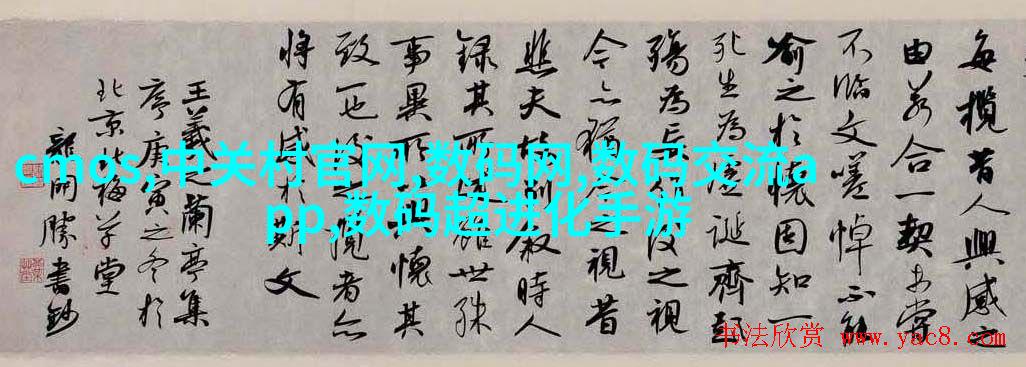 每揽昔人興感之
由若合一契未嘗
不臨文嗟悼不能
喻之於懷固知一
死生為虛誕齊彭
殤為妄作後之視
今亦猶今之視昔
悲夫故列叙時人
録其所述雖世殊
事異所以興懷其
致一也後之覽者亦
將有感於斯文
王羲之蘭亭集
序庚寅之冬於
北京北梅草堂
龍開勝書鈔
cmos,中关村官网,数码网,数码交流a
pp,数码超进化手游
书法欣赏 www.yac8.com